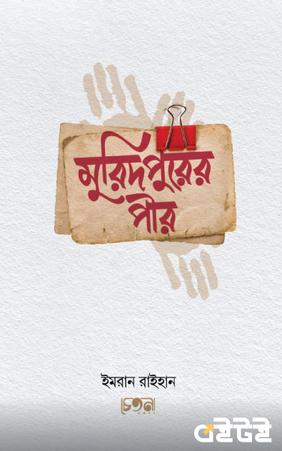 মুরিদপুরের
পীর
ইমরান রাইহান
চেতনা
বইটই